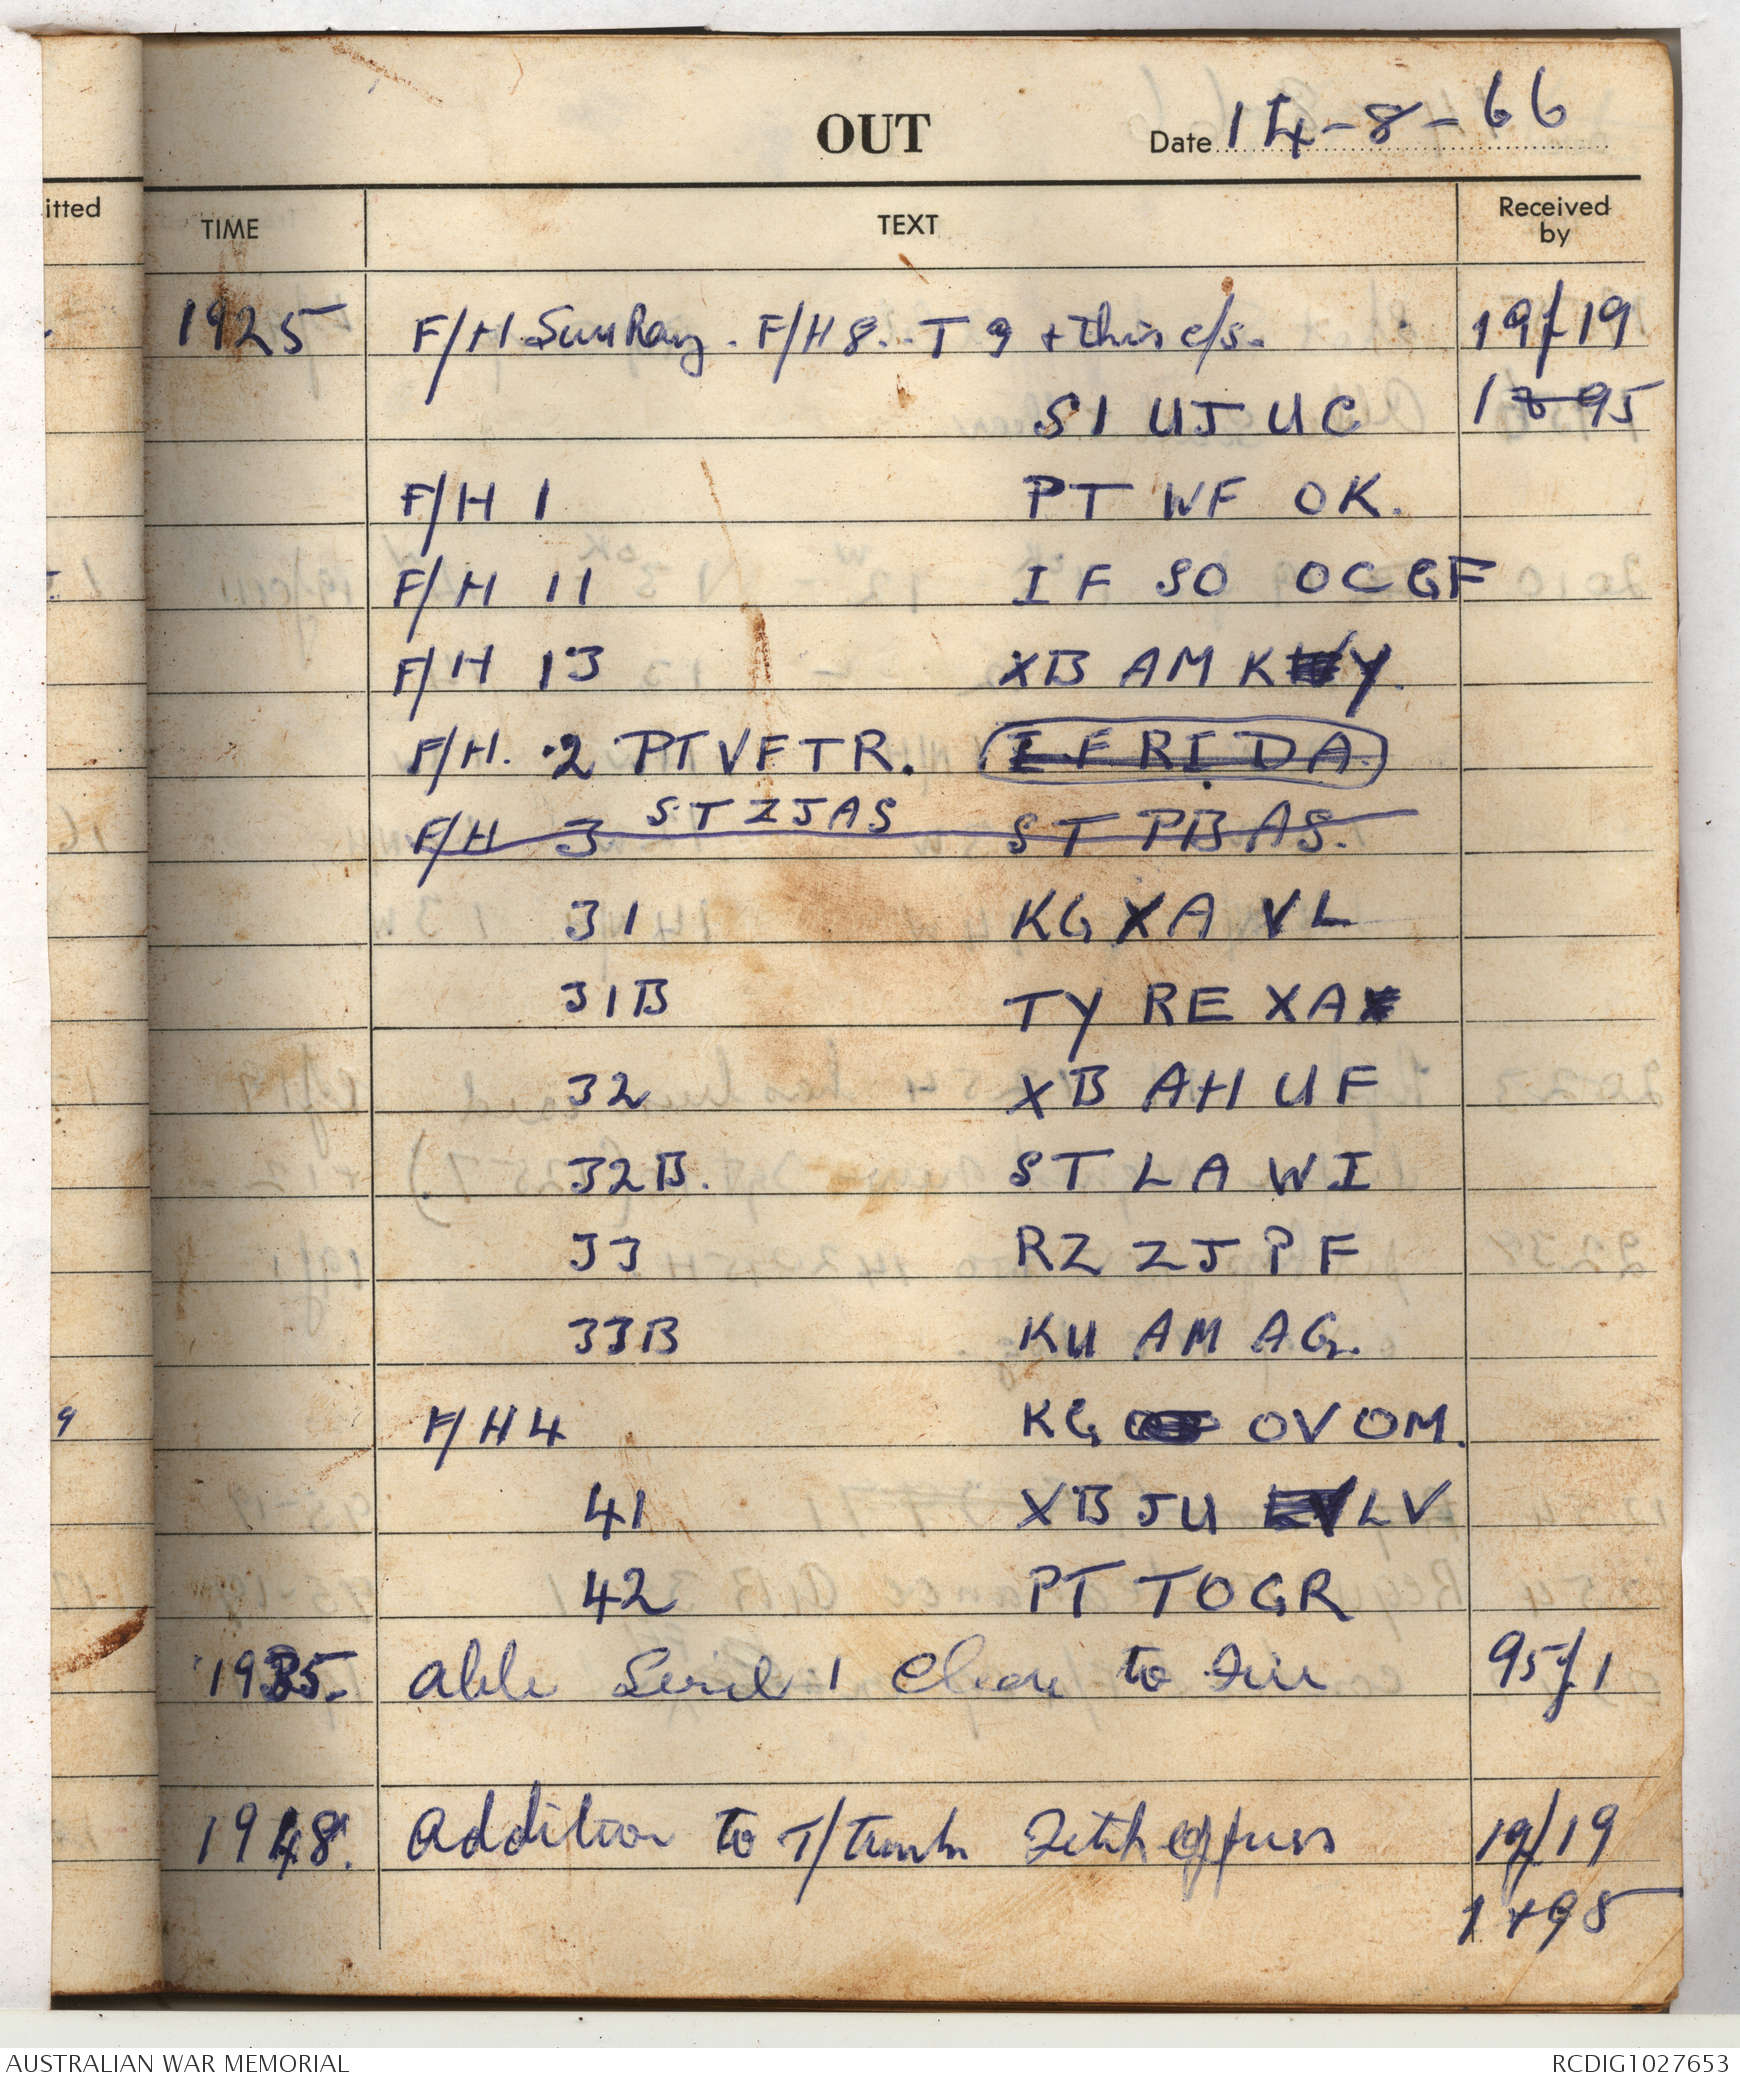 OUT Date 14-8-66
itted TIME TEXT Received by
1925 F/H SunRay. F/H 8. T 9 + this c/s. 19/19
SI UJ UC 1 & 95
F/H 1 PT WF OK.
F/H 11 IF SO OCGF
F/H 13 XB AM KY.
F/H. 2 PTVFTR. IFRIDA
F/H 3 STZJAS STPBAS.
31 KGXA VL
31B TY RE XA
32 XB AH UF
32B. ST LA WI
33 RZ ZJ PF
33B KU AM AG.
9 F/H 4 KG OVOM.
41 XB JU LV
42 PT TOGR
1935. Able Serial 1 Clear to Fire 95/1
1948. Addition to T/ 19/19
1 + 95
AUSTRALIAN WAR MEMORIAL RCDIG1027653